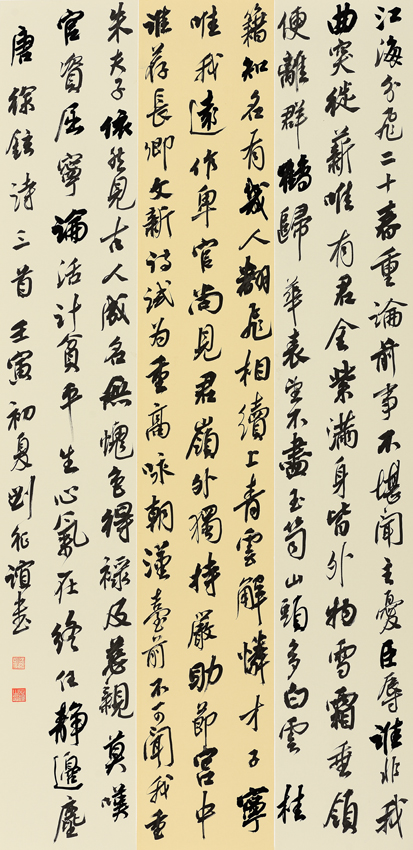 江海分飛二十春重論前事不堪聞主憂臣辱誰非我
曲突徙薪唯有君金紫滿身皆外物雪霜垂領
便離群鶴歸華表望不盡玉笥山頭多白雲 桂
籍知名有幾人翻飛相續上青雲解憐才子寧
唯我遠作卑官尚見君嶺外獨持嚴助節宮中
誰荐長卿文新詩試為重高咏朝漢臺前不可聞 我重
朱夫子依然見古人成名無愧色得祿及慈親莫嘆
官資屈寧論活計貧平生心氣在終任靜邊塵
唐徐鉉詩三首 壬寅初夏 劉誼書